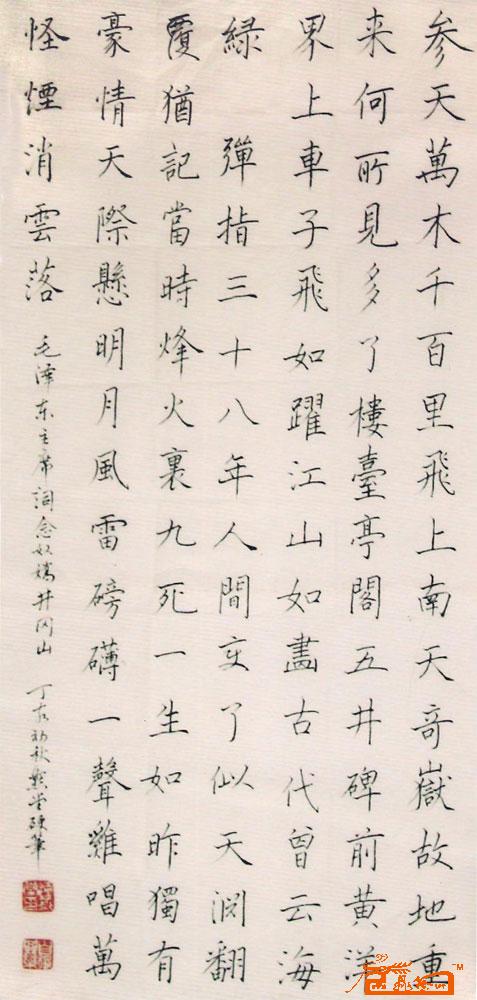 参天萬木千百里飛上南天奇嶽故地重
来何所見多了樓臺亭閣五井碑前黄洋
界上車子飛如躍江山如畫古代曾云海
緑 彈指三十八年人間变了似天渊翻
覆猶記當時烽火裏九死一生如昨獨有
豪情天際懸明月風雷磅礴一聲雞唱萬
怪煙消雲落
毛泽东主席詞念奴嬌井冈山 丁亥初秋硬筆